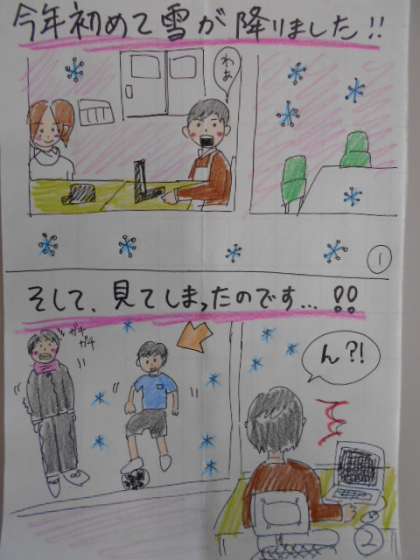 今年初めて雪が降りました!!
わぁ
①
そして、見てしまったのです…!!
ガチ
ガチ
ん?!
②